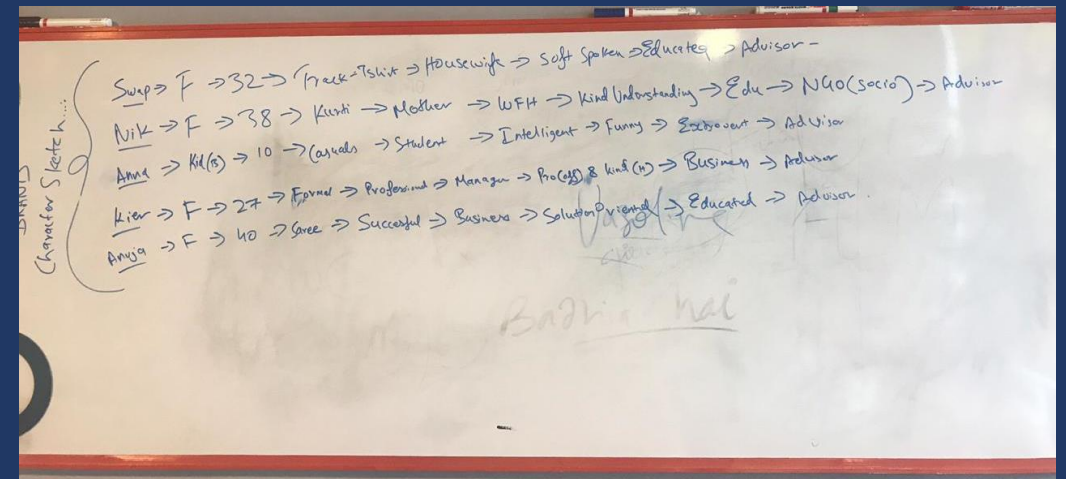 Character Sketch....
Swap → F → 32 → Track-Tshirt → Housewife → Soft Spoken → Educated → Advisor -
Nik → F → 38 → Kurti → Mother → WFH → Kind Understanding → Edu → NGO (socio) → Advisor
Anna → Kid(B) → 10 → Casuals → Student → Intelligent → Funny → Extrovert → Advisor
Kier → F → 27 → Formal → Professional → Manager → Pro(off) & kind(H) → Business → Advisor
Anuja → F → 40 → Saree → Succesful → Business → Solution Oriented → Educated → Advisor.
hai